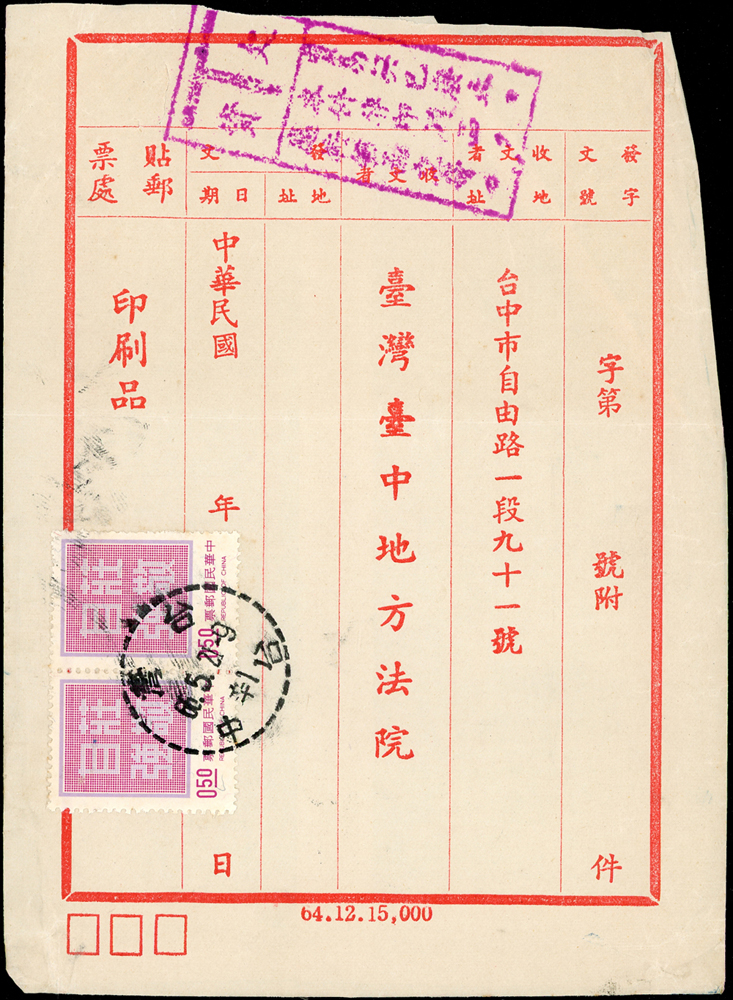 發文字號
字第
號附
件
收文者地址
台中市自由路一段九十一號
收文者
臺灣臺中地方法院
發文
地址
日期
中華民國
年
日
貼郵票處
印刷品
中華民國郵票
REPUBLIC OF CHINA
050
莊敬自強
中華民國郵票
REPUBLIC OF CHINA
050
莊敬自強
台灣
台中
64.12.15,000